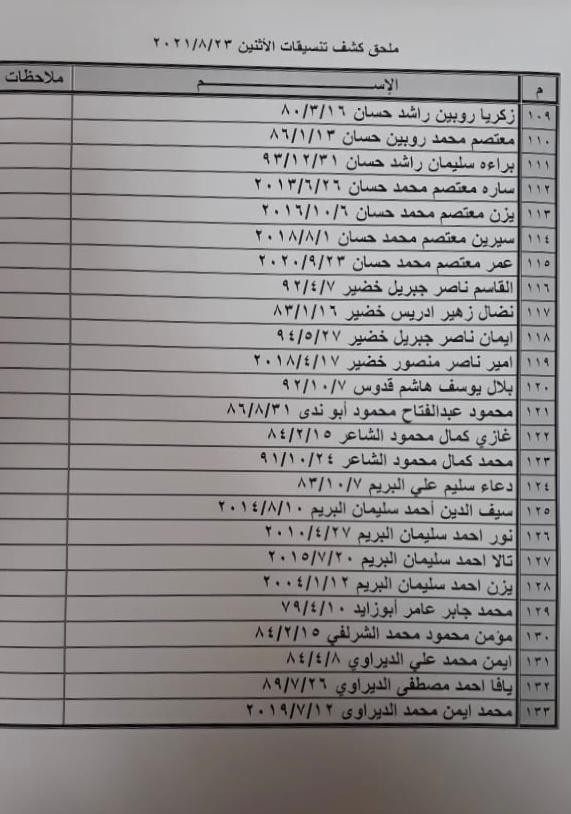 ملحق كشف تنسيقات الأثنين ٢٠٢١/٨/٢٣
م الإســـــــم ملاحظات
١٠٩ زكريا روبين راشد حسان ٨٠/٣/١٦
١١٠ معتصم محمد روبين حسان ٨٦/١/١٣
١١١ براءه سليمان راشد حسان ٩٣/١٢/٣١
١١٢ ساره معتصم محمد حسان ٢٠١٣/٦/٢٦
١١٣ يزن معتصم محمد حسان ٢٠١٦/١٠/٦
١١٤ سيرين معتصم محمد حسان ٢٠١٨/٨/١
١١٥ عمر معتصم محمد حسان ٢٠٢٠/٩/٢٣
١١٦ القاسم ناصر جبريل خضير ٩٢/٤/٧
١١٧ نضال زهير ادريس خضير ٨٣/١/١٦
١١٨ ايمان ناصر جبريل خضير ٩٤/٥/٢٧
١١٩ امير ناصر منصور خضير ٢٠١٨/٤/١٧
١٢٠ بلال يوسف هاشم قدوس ٩٢/١٠/٧
١٢١ محمود عبدالفتاح محمود أبو ندى ٨٦/٨/٣١
١٢٢ غازي كمال محمود الشاعر ٨٤/٢/١٥
١٢٣ محمد كمال محمود الشاعر ٩١/١٠/٢٤
١٢٤ دعاء سليم علي البريم ٨٣/١٠/٧
١٢٥ سيف الدين أحمد سليمان البريم ٢٠١٤/٨/١٠
١٢٦ نور احمد سليمان البريم ٢٠١٠/٤/٢٧
١٢٧ تالا احمد سليمان البريم ٢٠١٥/٧/٢٠
١٢٨ يزن احمد سليمان البريم ٢٠٠٤/١/١٢
١٢٩ محمد جابر عامر أبوزايد ٧٩/٤/١٠
١٣٠ مؤمن محمود محمد الشرلفي ٨٤/٢/١٥
١٣١ ايمن محمد علي الديراوي ٨٤/٤/٨
١٣٢ يافا احمد مصطفى الديراوي ٨٩/٧/٢٦
١٣٣ محمد ايمن محمد الديراوى ٢٠١٩/٧/١٢